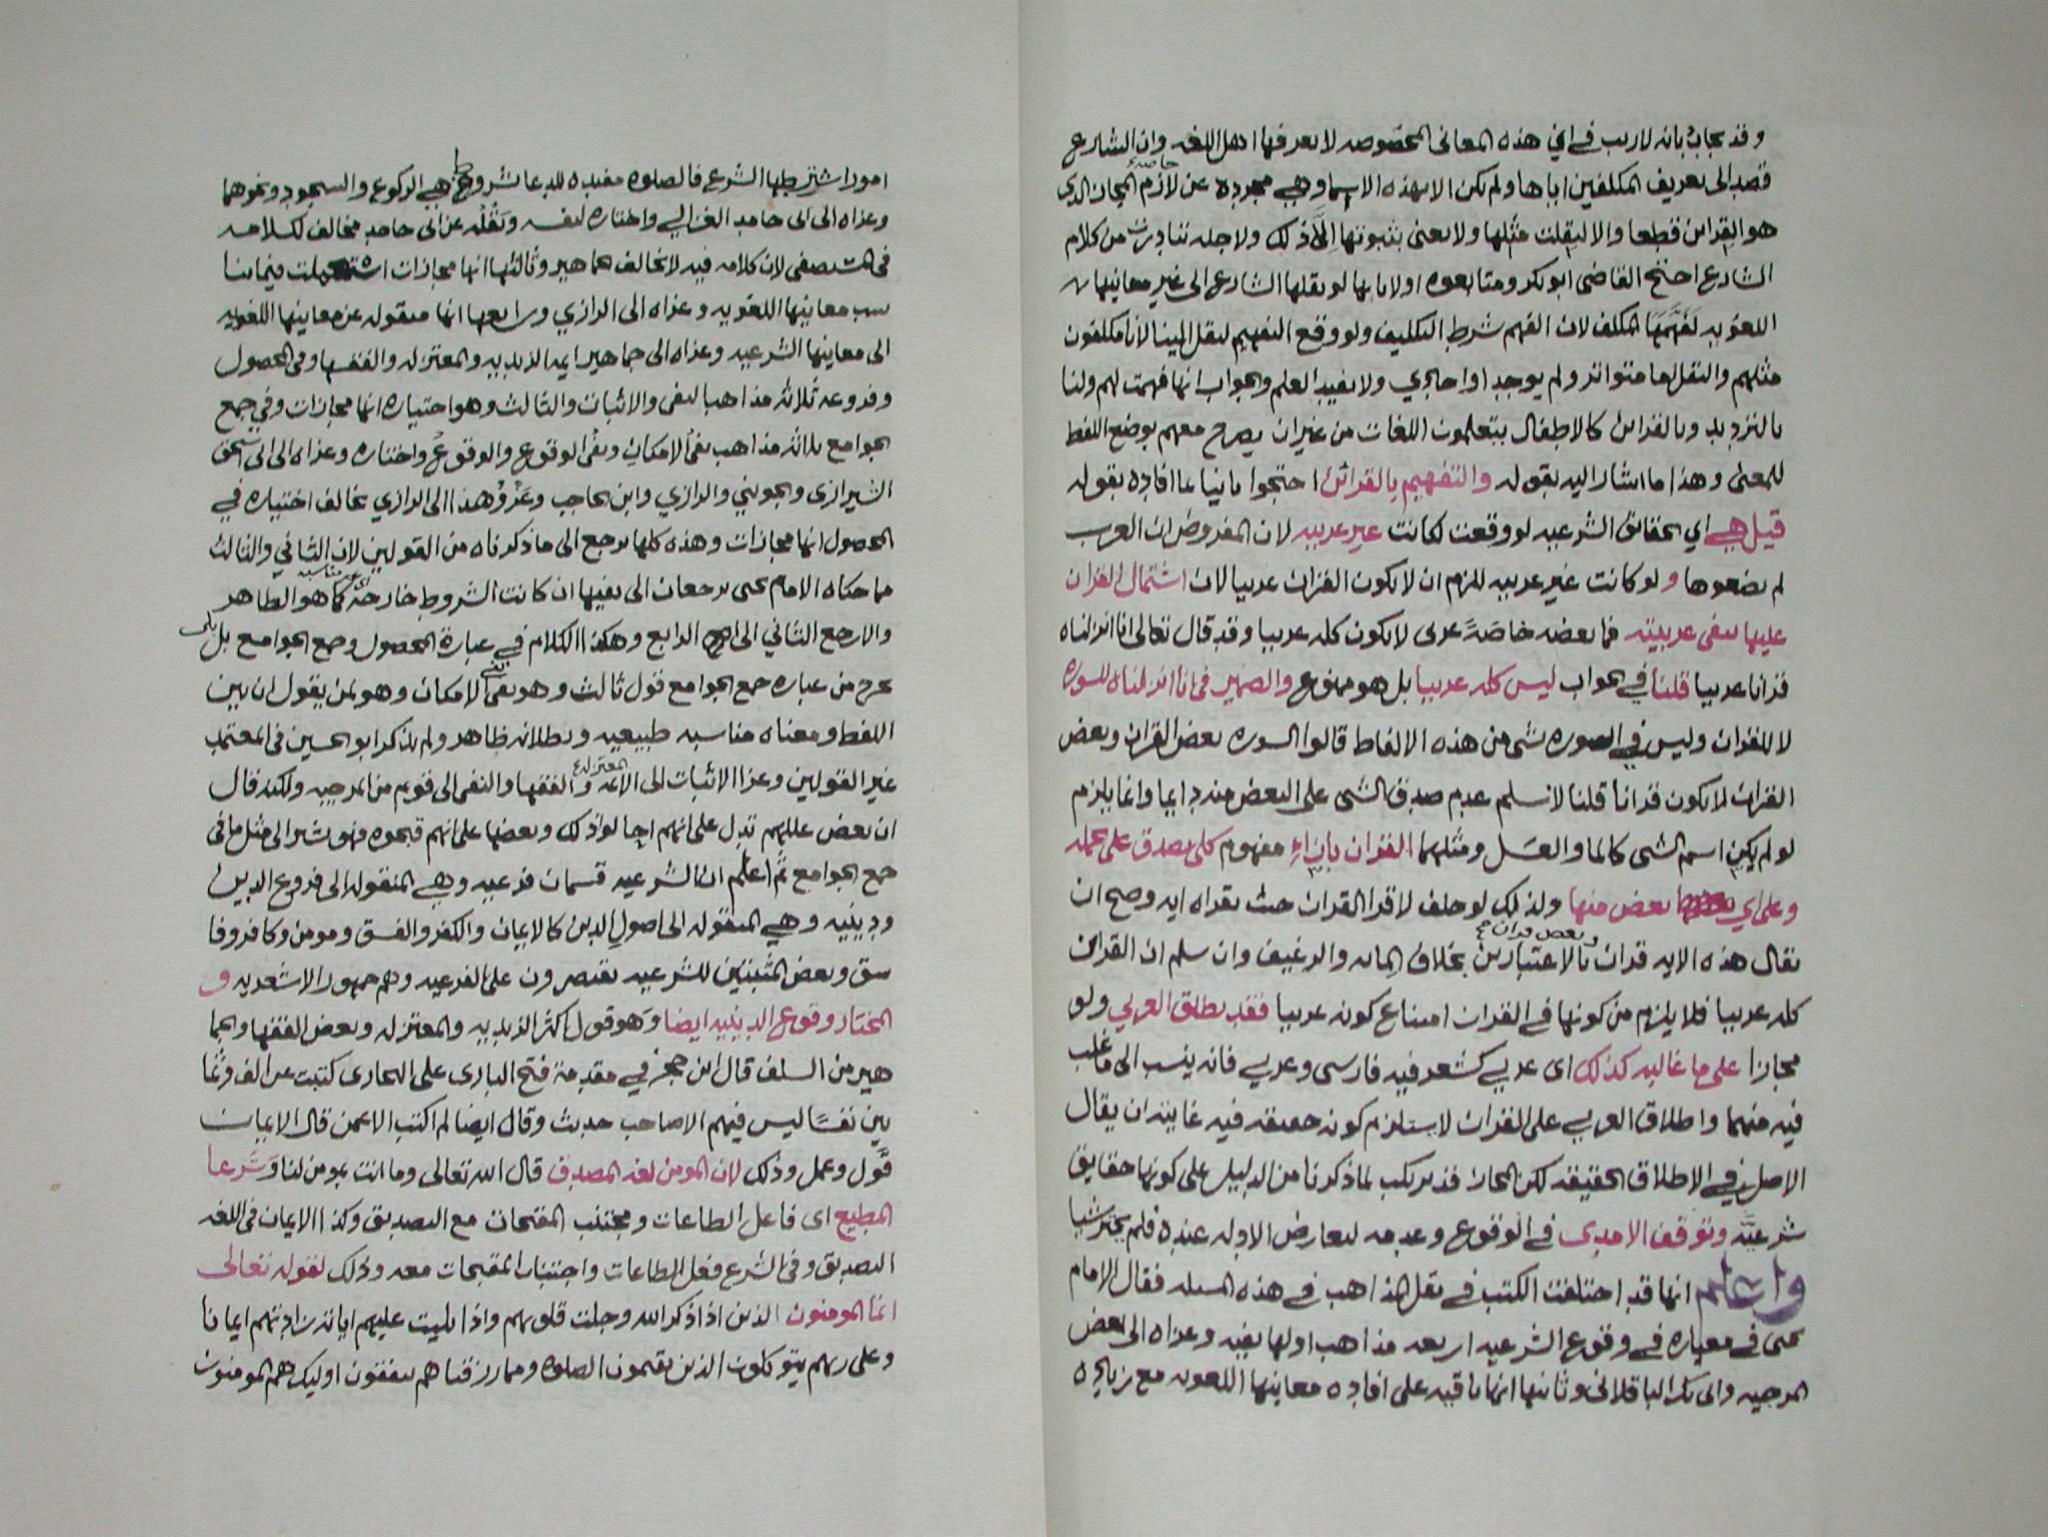 وقد يجاب بانه لا ريب في ان هذه المعاني المخصوصه لا يعرفها اهل اللغه وان الشارع
قصد الى تعريف المكلفين اياها ولم يكن الا بهذه الاسما وهي مجرده عن لازم المجاز الذي
خاصة
هو القراين قطعا والا لنقلت مثلها ولا نعني بثبوتها الا ذلك ولاجله تبادرت من كلام
الشارع احتج القاضي ابو بكر ومتابعوه اولا بانها لو نقلها الشارع الى غير معانيها
اللغويه لفهمها المكلف لان الفهم شرط التكليف ولو وقع التفهيم لنقل الينا لانا مكلفون
مثلهم والنقل اما متواتر ولم يوجد او احادي ولا يفيد العلم والجواب انها فهمت لهم ولنا
بالترديد وبالقراين كالاطفال يتعلمون اللغات من غير ان يصرح معهم بوضع اللفظ
للمعنى وهذا ما اشار اليه بقوله والتفهيم بالقرائن احتجوا ثانيا بما افاده بقوله
قيل هي اي الحقايق الشرعيه لو وقعت لكانت غير عربيه لان المفروض ان العرب
لم يضعوها ولو كانت غير عربيه للزم ان لا يكون القران عربيا لان اشتمال القران
عليها ينفي عربيته فما بعضه خاصة عربي لا يكون كله عربيا وقد قال تعالى انا انزلناه
قرانا عربيا قلنا في الجواب ليس كله عربيا بل هو ممنوع والضمير في انا انزلناه للسوره
لا للقران وليس في السوره شي من هذه الالفاظ قالوا السوره بعض القران وبعض
القران لا يكون قرانا قلنا لا نسلم عدم صدق الشي على البعض منه دايما وانما يلزم
لو لم يكن اسم الشي كالما والعسل ومثلهما القران بازاء مفهوم كلي يصدق على جمله
وعلى اي بعض منها ولذلك لو حلف لا قرا القران حنث بقراه ايه وصح ان
وبعض قران
يقال هذه الايه قران بالاعتبارين بخلاف المايه والرغيف وان سلم ان القران
كله عربيا فلا يلزم من كونها في القران امتناع كونه عربيا فقد يطلق العربي ولو
مجازا على ما غالبه كذلك اي عربي كشعر فيه فارسي وعربي فانه ينسب الى ما غلب
فيه منهما واطلاق العربي على القران لا يستلزم كونه حقيقه فيه غايته ان يقال
الاصل في الاطلاق الحقيقه لكن المجاز قد يرتكب لما ذكرنا من الدليل على كونها حقايق
شرعيه وتوقف الامدي في الوقوع وعدمه لتعارض الادله عنده فلم يختر شيا
واعلم انها قد اختلفت الكتب في نقل المذاهب في هذه المسله فقال الامام
يحيى في معياره في وقوع الشرعيه اربعه مذاهب اولها نفيه وعزاه الى بعض
المرجيه والى بكر الباقلاني وثانيها انها باقيه على افاده معانيها اللغويه مع زياده
امور اشترطها الشرع فالصلوه مفيده للدعا بشروط هي الركوع والسجود ونحوهما
وعزاه الى ابي حامد الغزالي واختاره لنفسه ونقله عن ابي حامد مخالف لكلامه
في المستصفى لان كلامه فيه لا يخالف الجماهير وثالثها انها مجازات استعملت فيما يناسب
سب معانيها اللغويه وعزاه الى الرازي ورابعها انها منقوله عن معانيها اللغويه
الى معانيها الشرعيه وعزاه الى جماهير ايمه الزيديه والمعتزله والفقها وفي المحصول
وفروعه ثلاثه مذاهب النفي والاثبات والثالث وهو اختياره انها مجازات وفي جمع
الجوامع ثلاثه مذاهب نفي الامكان ونفي الوقوع والوقوع واختاره وعزاه الى ابي اسحق
الشيرازي والجويني والرازي وابن الحاجب وعزو هذا الى الرازي يخالف اختياره في
المحصول انها مجازات وهذه كلها ترجع الى ما ذكرناه من القولين لان الثاني والثالث
مما حكاه الامام يحيى يرجعان الى نفيها ان كانت الشروط خارجة كما هو الظاهر
والا رجع الثاني الى الرابع وهكذا الكلام في عبارة المحصول وجمع الجوامع بل
يخرج من عباره جمع الجوامع قول ثالث وهو نفي الامكان وهو لمن يقول ان بين
اللفظ ومعناه مناسبه طبيعيه وبطلانه ظاهر ولم يذكر ابو الحسين في المعتمد
غير القولين وعزا الاثبات الى الايمه والفقها والنفي الى قوم من المرجيه ولكنه قال
المعتزله
ان بعض عللهم تدل على انهم احالوا ذلك وبعضها على انهم قبحوه فهو يشير الى مثل ما في
جمع الجوامع ثم اعلم ان الشرعيه قسمان فرعيه وهي المنقوله الى فروع الدين
ودينيه وهي المنقوله الى اصول الدين كالايمان والكفر والفسق ومومن وكافر وفا
سق وبعض المثبتين للشرعيه يقتصرون على الفرعيه وهم جمهور الاشعريه و
المختار وقوع الدينيه ايضا وهو قول اكثر الزيديه والمعتزله وبعض الفقها والجما
هير من السلف قال ابن حجر في مقدمة فتح الباري على البخاري كتبت عن الف وثما
نين نفسا ليس فيهم الا صاحب حديث وقال ايضا لم اكتب الا عمن قال الايمان
قول وعمل وذلك لان المومن لغه المصدق قال الله تعالى وما انت بمومن لنا وشرعا
المطيع اي فاعل الطاعات ومجتنب المقبحات مع التصديق وكذا الايمان في اللغه
التصديق وفي الشرع فعل الطاعات واجتناب المقبحات معه وذلك لقوله تعالى
انما المومنون الذين اذا ذكر الله وجلت قلوبهم واذا تليت عليهم اياته زادتهم ايمانا
وعلى ربهم يتوكلون الذين يقيمون الصلوه ومما رزقناهم ينفقون اوليك هم المومنون